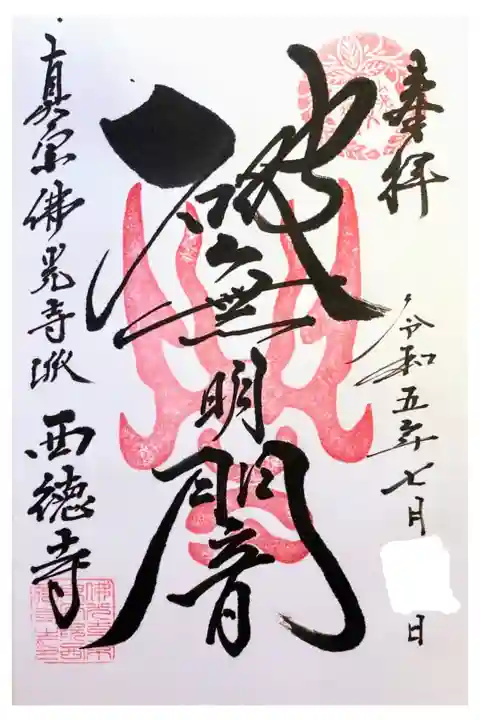 奉拝
令和五年七月
日
破無明闇
真宗佛光寺派 西徳寺